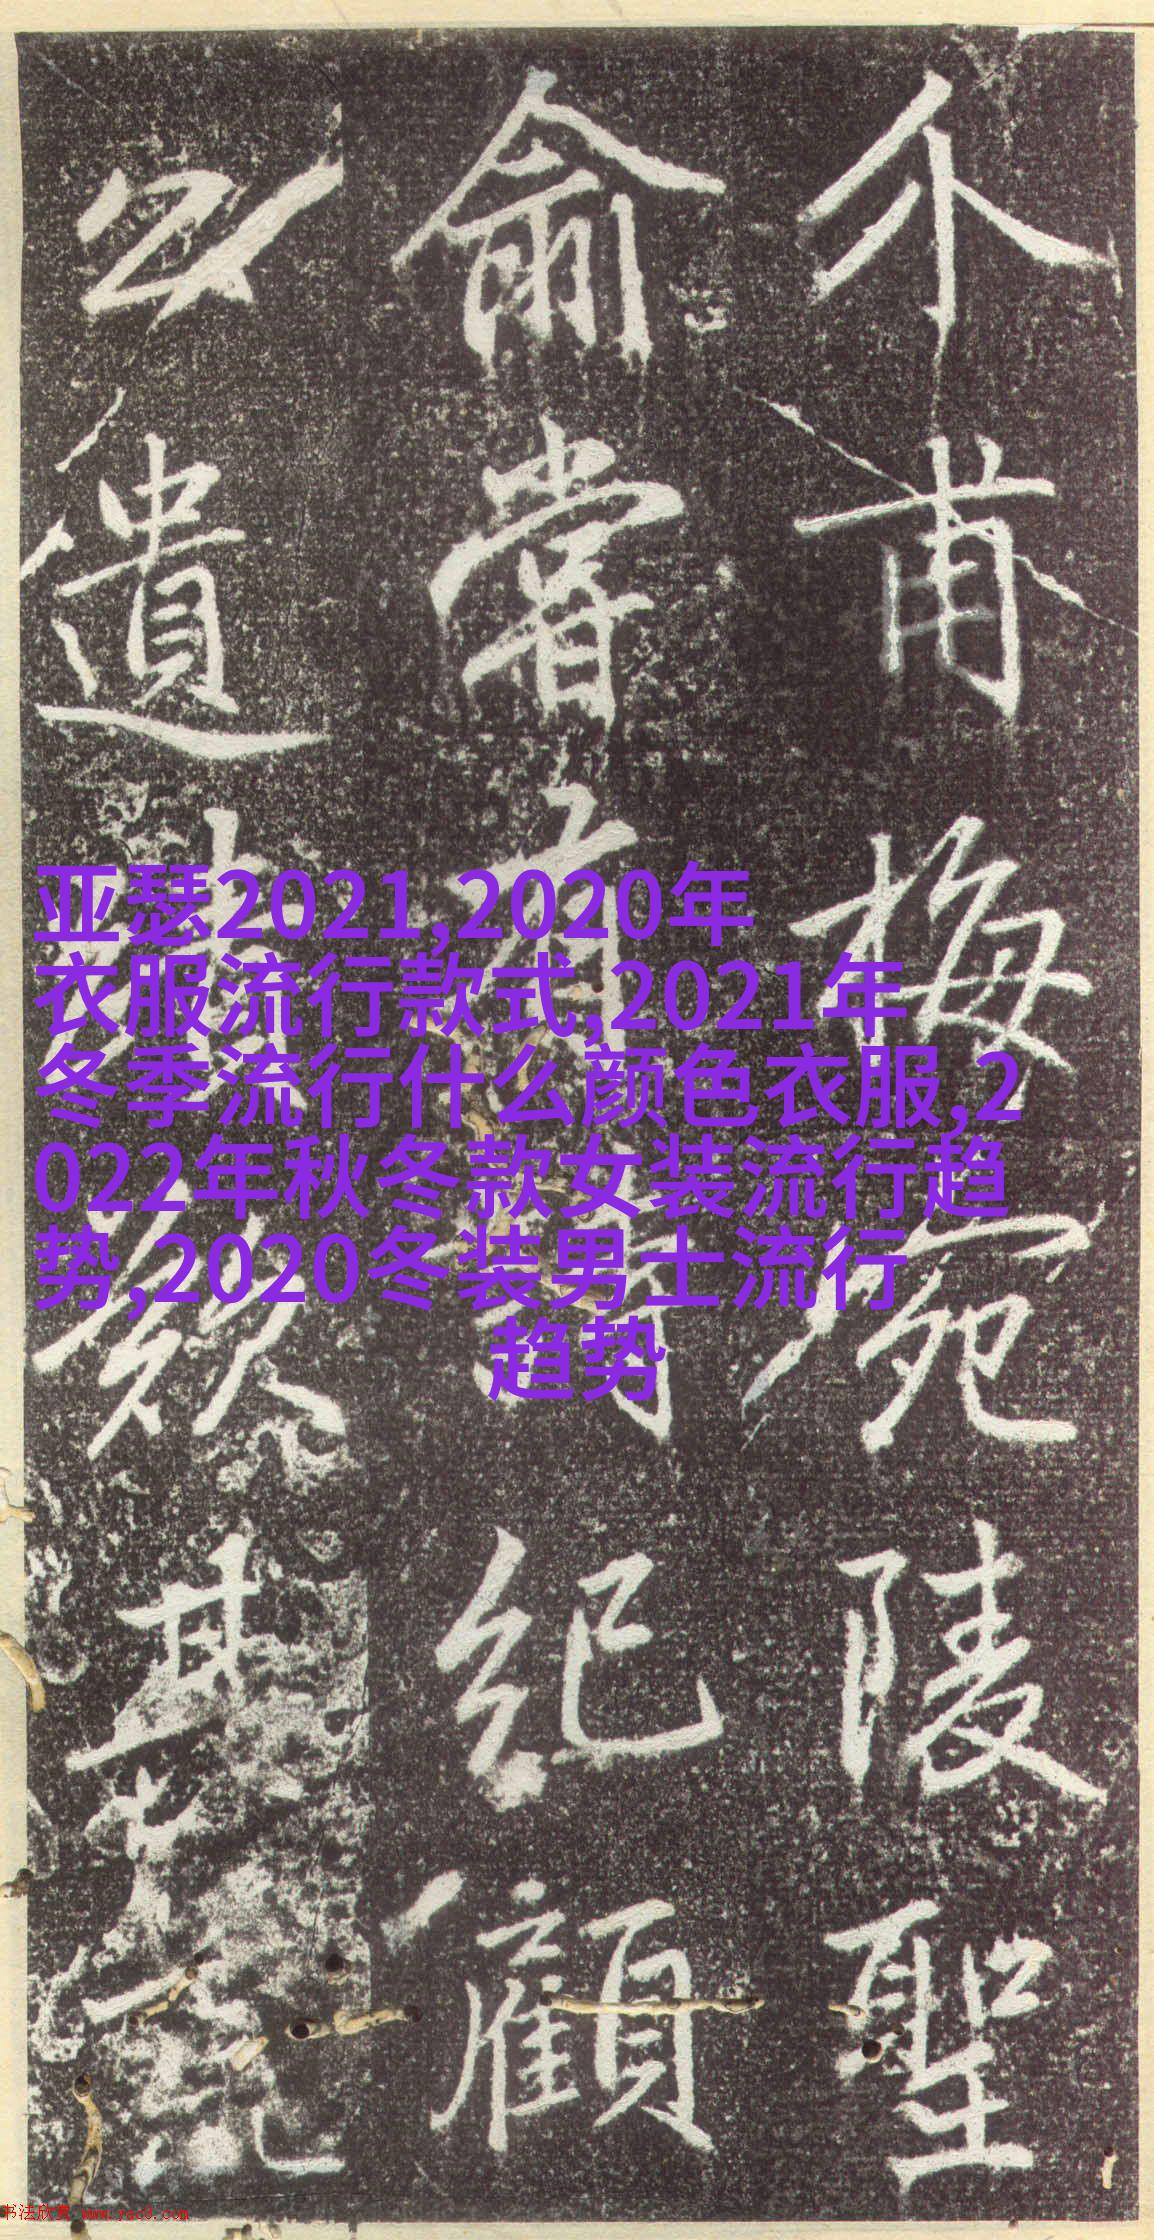 介甫梅宛陵聖
俞嘗有詩紀顧
遺
其
亚瑟2021,2020年
衣服流行款式,2021年
冬季流行什么颜色衣服,2
022年秋冬款女装流行趋
势,2020冬装男士流行
趋势
书法欣赏 www.yac8.com